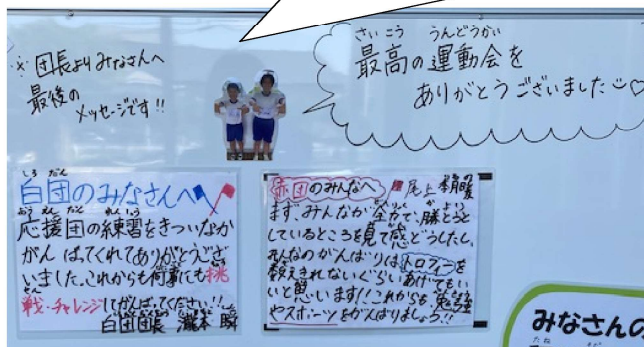 ※団長よりみなさんへ
最後の
メッセージです!!
さいこう うんどうかい
最高の運動会を
ありがとうございました
しろ だん
白団のみなさんへ
おうえんだん れんしゅう
応援団の練習をきついなか
がんばってくれてありがとうござ
いました。これからも何事にも挑
せん
戦・チャレンジしてがんばってください!!
白団団長 瀧本
赤団のみんなへ 尾上
まず、みんなが全力で、勝とうと
しているところを見て感どうしたし、
みんなのがんばりはトロフィーを
数えきれないぐらいあげてもい
いと思います!!これからも、
やスポーツをがんばりましょう!!
みなさんの